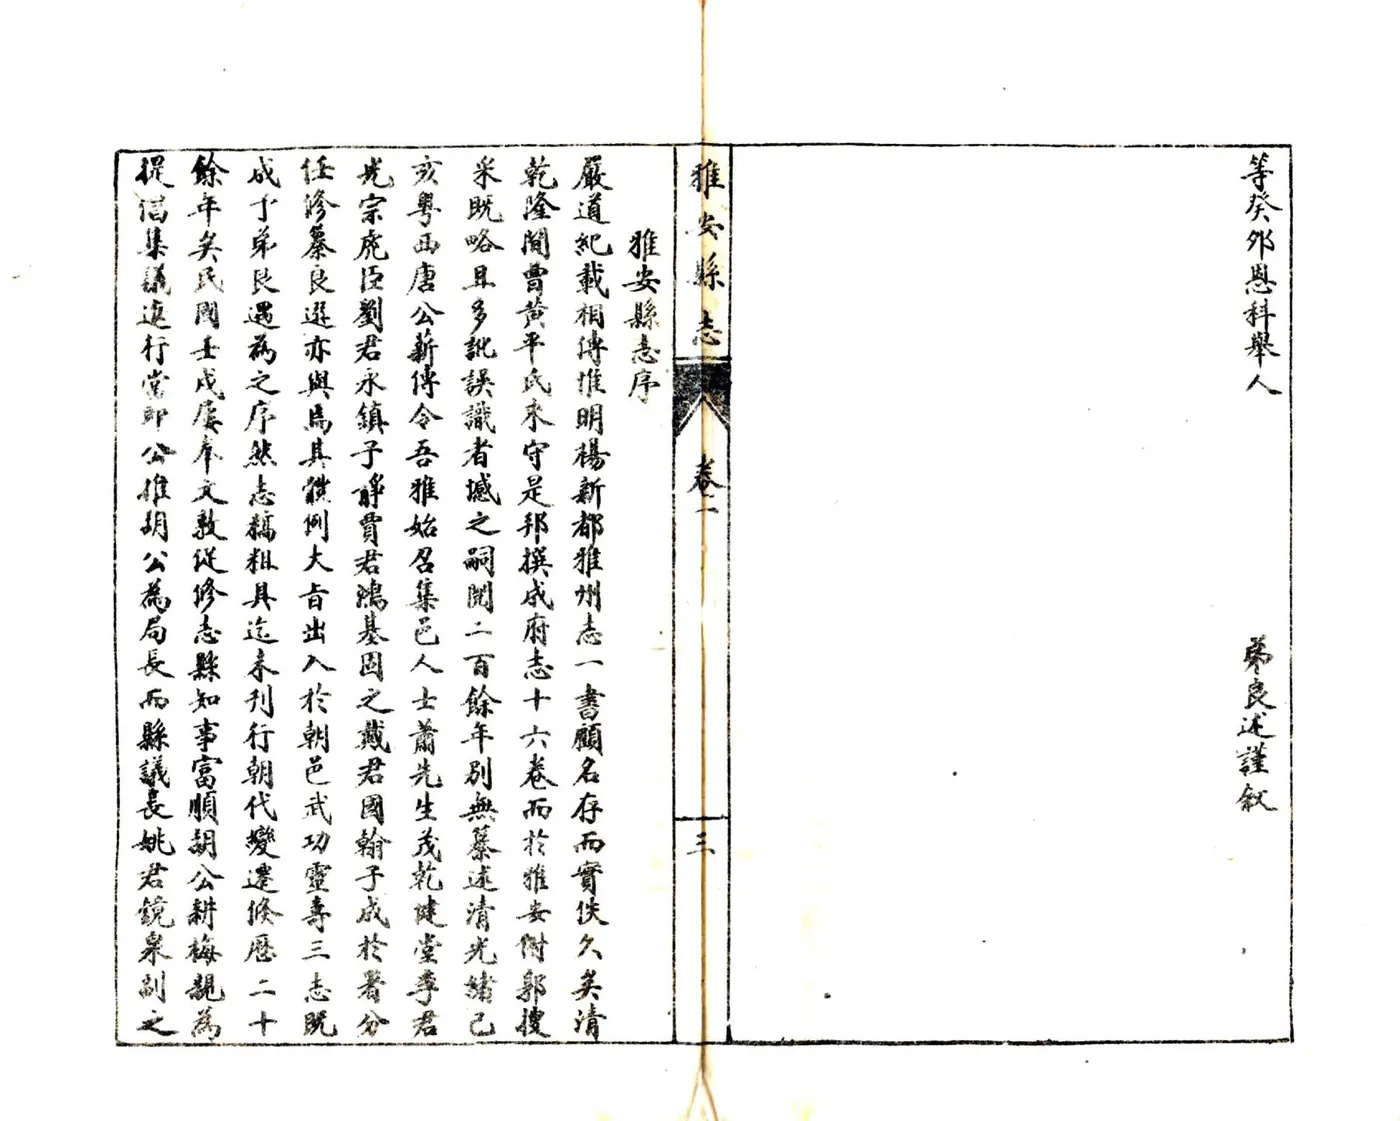 等癸卯恩科舉人
弟良述謹叙
雅安縣志
卷一
三
雅安縣志序
嚴道紀載相傳惟明楊新都雅州志一書顧名存而實佚久矣清
乾隆間曹黃平氏來守是邦撰成府志十六卷而於雅安附郭搜
采既略且多訛誤識者憾之嗣閱二百餘年別無纂述清光緒己
亥粵西唐公薪傳令吾雅始召集邑人士蕭先生茂乾健堂李君
光宗虎臣劉君永鎮子靜賈君鴻基固之戴君國翰子成於署分
任修纂良選亦與焉其體例大旨出入於朝邑武功靈壽三志既
成予弟良遇為之序然志稿粗具迄未刊行朝代變遷倏歷二十
餘年矣民國壬戌屢奉文敦促修志縣知事富順胡公耕梅親為
提倡集議進行當即公推胡公為局長而縣議長姚君鏡泉副之